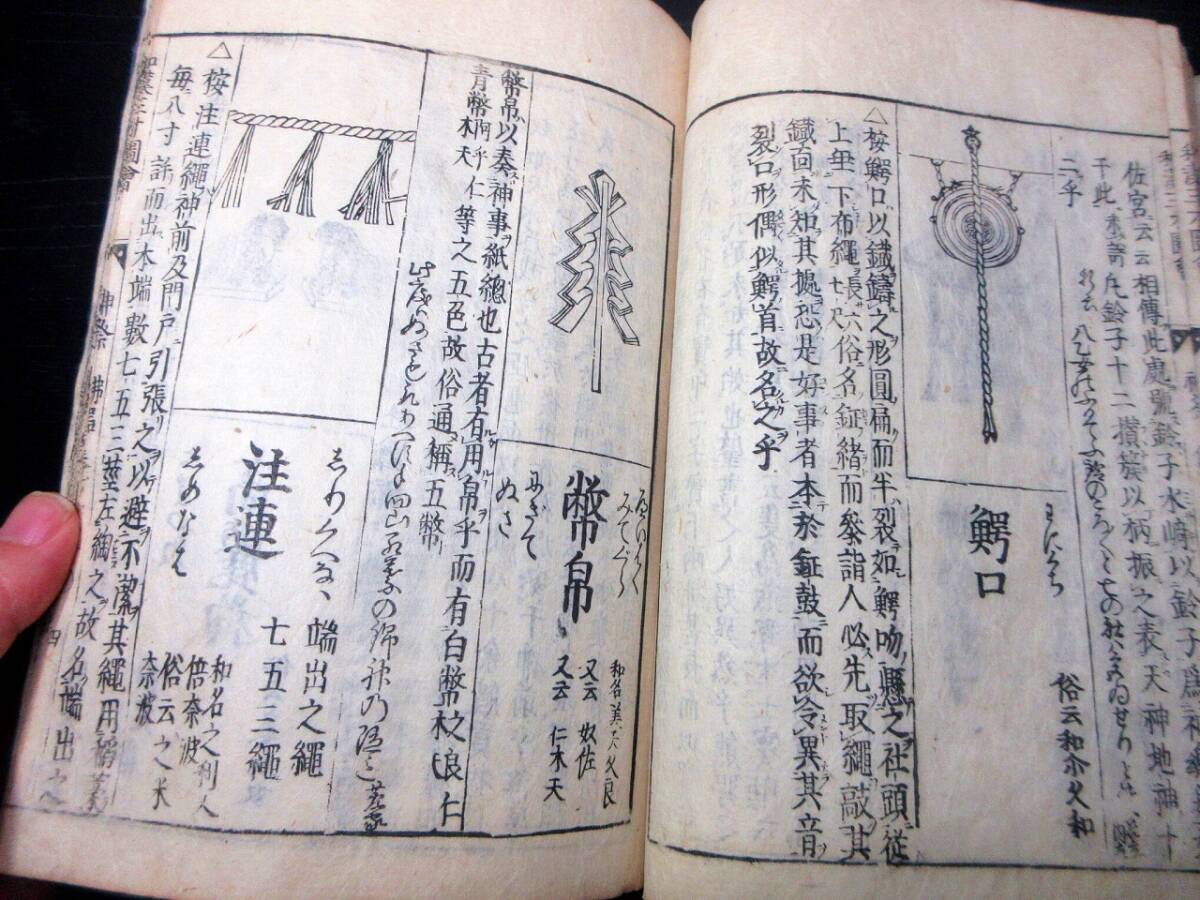 佐宮云云相傳此處號鈴子水崎以鈴子爲神
于此
凡鈴子十二攅簇以柄振之表天神地神十
二乎
鰐口
わにくち
俗云和尒久和
△按鰐口以鐵鑄之形圓扁而半裂如鰐吻懸之社頭從
上垂下布繩長六七尺俗名鉦緒而參詣人必先取繩敲其
鐵靣未知其據恐是好事者本於鉦鼓而欲令異其音
裂口形偶似鰐首故名之乎
へいはく
みてぐら
幣帛
にぎて
ぬさ
和名美天久良
又云 奴佐
又云 仁木天
幣帛以奏神事紙總也古者有用帛乎而有白幣
青幣等之五色故俗通稱五幣
此度はぬさもとりあへす手向山紅葉の錦神の随意
しりくへなは
注連
しめなは
端出之繩
七五三繩
和名之利久
倍奈波
俗云之米
奈波
△按注連繩神前及門戸引張之以避不潔其繩用稻藁
毎八寸許而出本端數七五三莖左綯之故名端出之
和漢三才圖會
神祭 佛噐
四